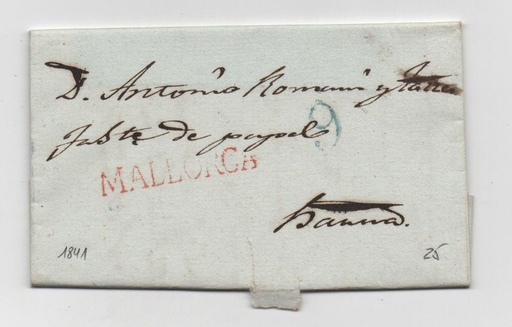 D. Antonio Romani y Tarres
Fabte de papel
9
MALLORCA
Barna.
1841
25